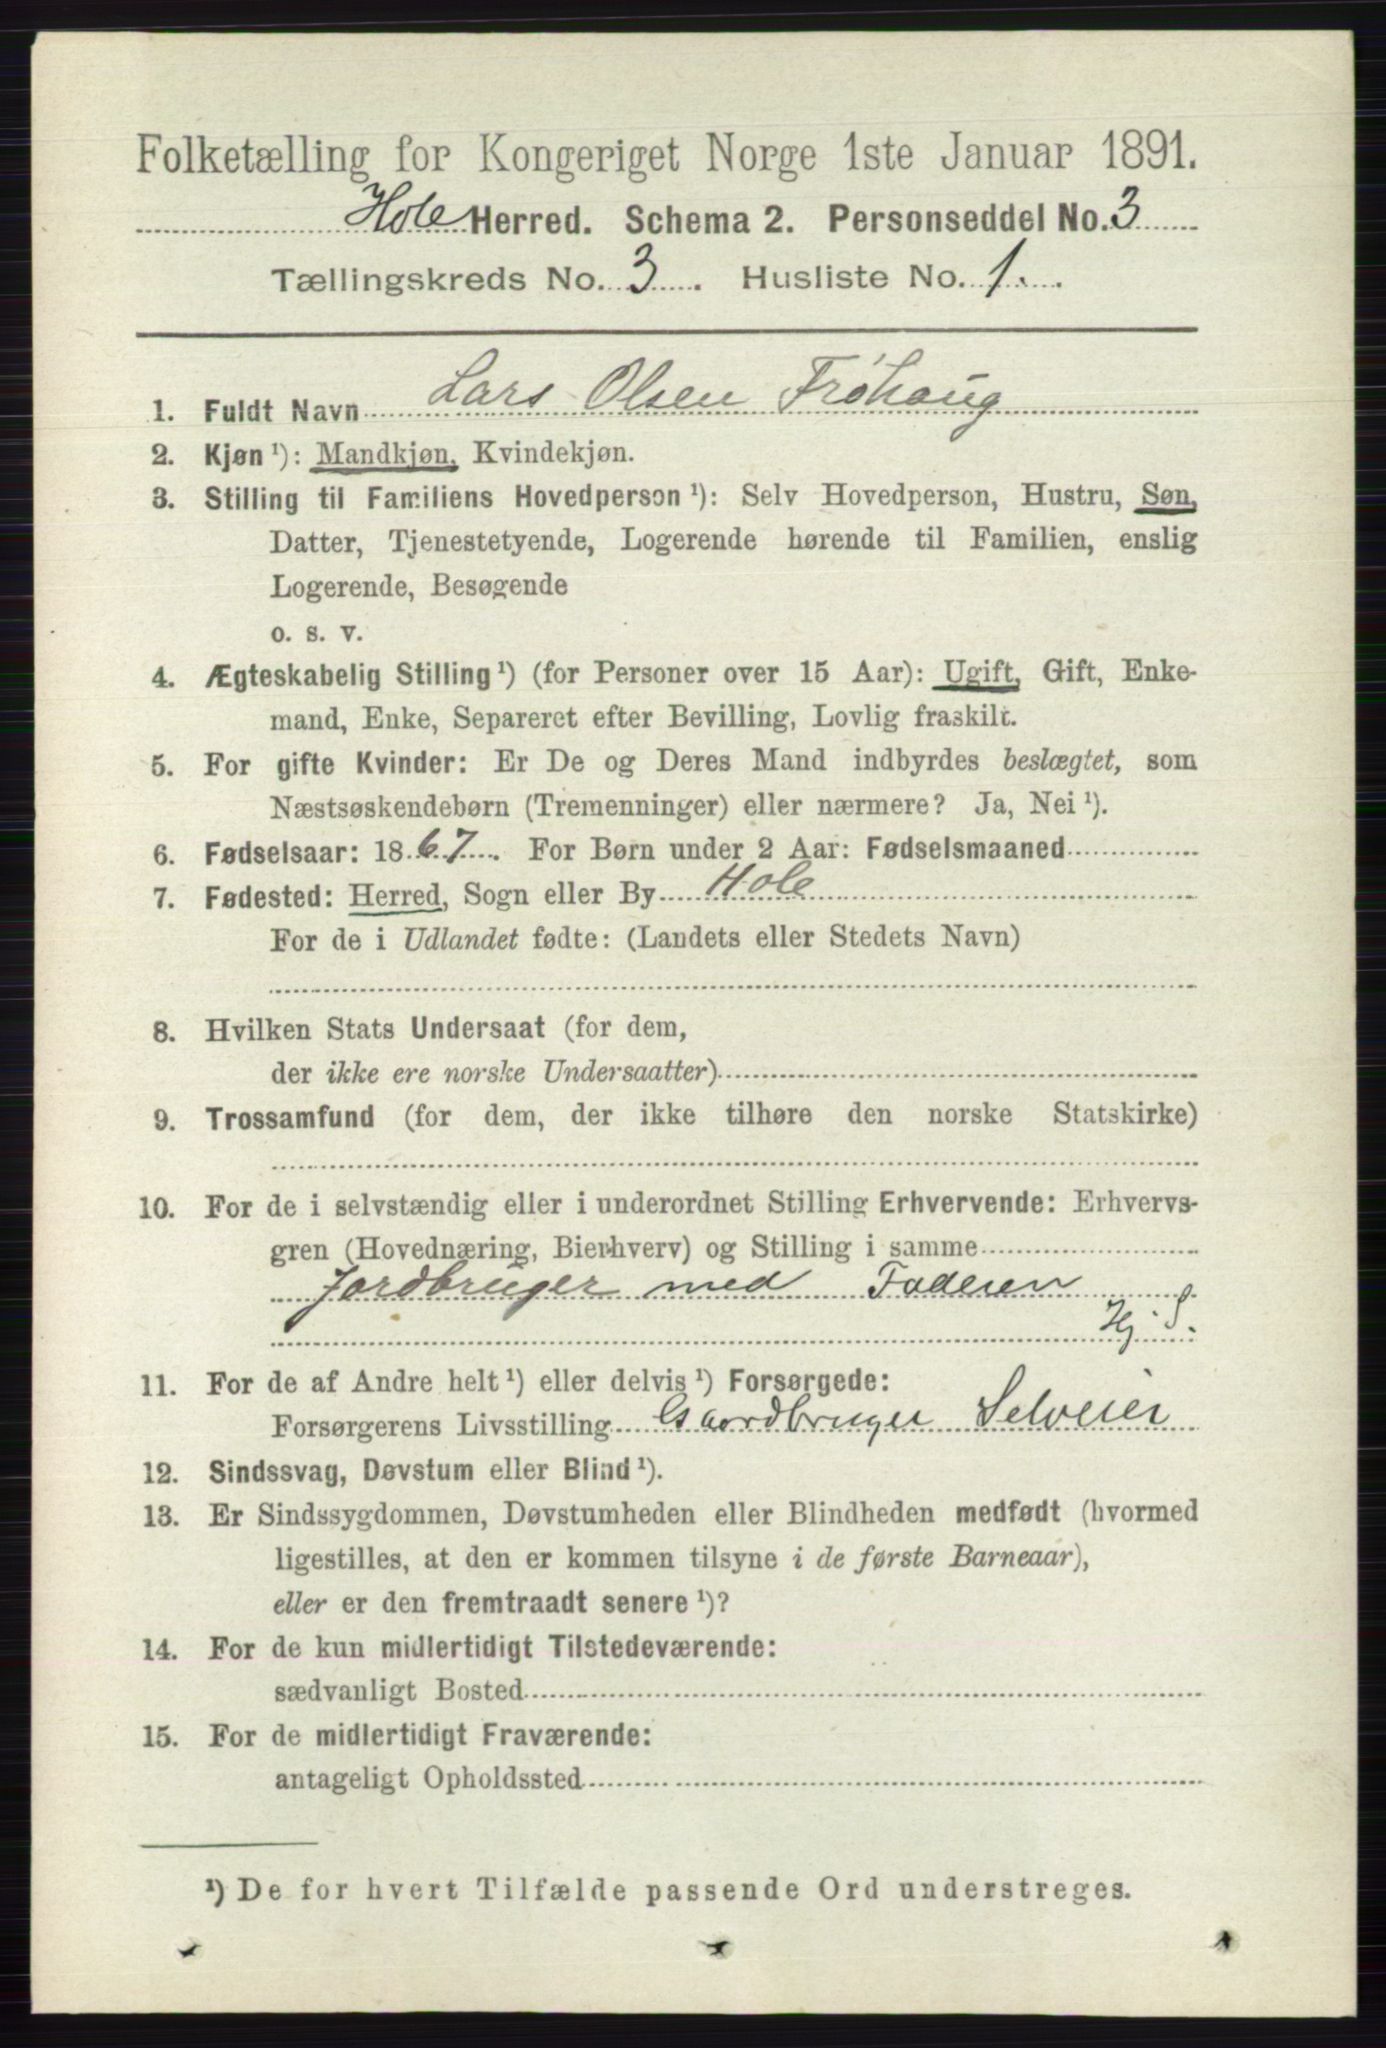 Folketælling for Kongeriget Norge 1ste Januar 1891.
Hole Herred. Schema 2. Personseddel No. 3
Tællingskreds No. 3. Husliste No. 1.
1. Fuldt Navn Lars Olsen Frøhaug
2. Kjøn ¹): Mandkjøn, Kvindekjøn.
3. Stilling til Familiens Hovedperson ¹): Selv Hovedperson, Hustru, Søn,
Datter, Tjenestetyende, Logerende hørende til Familien, enslig
Logerende, Besøgende
o. s. v.
4. Ægteskabelig Stilling ¹) (for Personer over 15 Aar): Ugift, Gift, Enke-
mand, Enke, Separeret efter Bevilling, Lovlig fraskilt.
5. For gifte Kvinder: Er De og Deres Mand indbyrdes beslægtet, som
Næstsøskendebørn (Tremenninger) eller nærmere? Ja, Nei ¹).
6. Fødselsaar: 1867. For Børn under 2 Aar: Fødselsmaaned
7. Fødested: Herred, Sogn eller By Hole
For de i Udlandet fødte: (Landets eller Stedets Navn)
8. Hvilken Stats Undersaat (for dem,
der ikke ere norske Undersaatter)
9. Trossamfund (for dem, der ikke tilhøre den norske Statskirke)
10. For de i selvstændig eller i underordnet Stilling Erhvervende: Erhvervs-
gren (Hovednæring, Bierhverv) og Stilling i samme
Jordbruger med Faderen
Hj. S.
11. For de af Andre helt ¹) eller delvis ¹) Forsørgede:
Forsørgerens Livsstilling Gaardbruger Selveier
12. Sindssvag, Døvstum eller Blind ¹).
13. Er Sindssygdommen, Døvstumheden eller Blindheden medfødt (hvormed
ligestilles, at den er kommen tilsyne i de første Barneaar),
eller er den fremtraadt senere ¹)?
14. For de kun midlertidigt Tilstedeværende:
sædvanligt Bosted
15. For de midlertidigt Fraværende:
antageligt Opholdssted
¹) De for hvert Tilfælde passende Ord understreges.